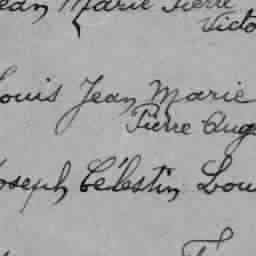 Jean Marie Pierre
Victo
Louis Jean Marie
Pierre Aug
Joseph Célestin Lou